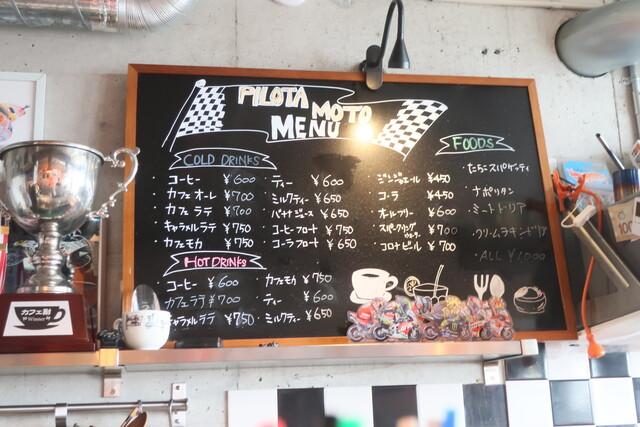 PILOTA MOTO
MENU
COLD DRINKS
・コーヒー ¥600
・カフェオーレ ¥700
・カフェラテ ¥700
・キャラメルラテ ¥750
・カフェモカ ¥750
・ティー ¥600
・ミルクティー ¥650
・バナナジュース ¥650
・コーヒーフロート ¥750
・コーラフロート ¥650
・ジンジャエール ¥450
・コーラ ¥450
・オールフリー ¥600
・スパークリング
ウォーター ¥700
・コロナビール ¥700
HOT DRINKS
・コーヒー ¥600
・カフェラテ ¥700
・キャラメルラテ ¥750
・カフェモカ ¥750
・ティー ¥600
・ミルクティー ¥650
FOODS
・たらこスパゲッティ
・ナポリタン
・ミートドリア
・ALL ¥1,000
カフェ副
Winner